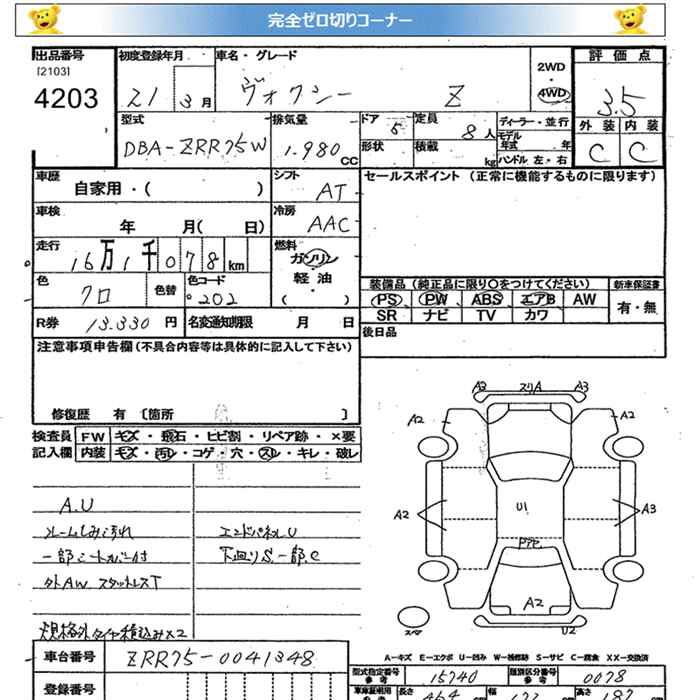 完全ゼロ切りコーナー
出品番号 初度登録年月 車名・グレード 2WD・4WD 評価点
[2103]
4203 21 3月 ヴォクシー Z 3.5
型式 排気量 ドア 5 定員 8人 ディーラー・並行 外装 内装
DBA-ZRR75W 1.980cc 形状 積載 kg モデル年式 年 C C
ハンドル 左・右
車歴 シフト セールスポイント (正常に機能するものに限ります)
自家用・( ) AT
車検 冷房
年 月( 日) AAC
走行 燃料
16万1千078km ガソリン
色 色替 色コード 軽油 装備品(純正品に限り○をつけてください) 新車保証書
クロ 202 ・( ) PS PW ABS エアB AW 有・無
R券 13.330円 名変通知期限 月 日 SR ナビ TV カワ
後日品
注意事項申告欄(不具合内容等は具体的に記入して下さい)
修復歴 有 [箇所 ]
A3 スリA A3
A2 A2
検査員 FW キズ・飛石・ヒビ割・リペア跡・×要
記入欄 内装 キズ・汚レ・コゲ・穴・スレ・キレ・破レ
A.U
ルームしみ汚れ エンドパネルU
一部シートカバー付 下廻りS.一部.C
外AW スタットレスT
規格外タイヤ積込み×2
A2 U1 A3
A2
スペア U2
車台番号 ZRR75-0041348
A-キズ E-エクボ U-凹み W-補修跡 S-サビ C-腐食 XX-交換済
型式指定番号 参考 15740 類別区分番号 参考 0078
登録番号 車庫証明用 長さ 幅 高さ